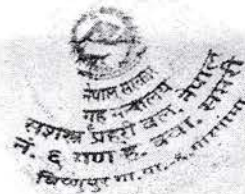 नेपाल सरकार
गृह मन्त्रालय
सशस्त्र प्रहरी बल, नेपाल
नं. ६ गण हे. क्वा. सप्तरी
विष्णुपुर गा.पा.